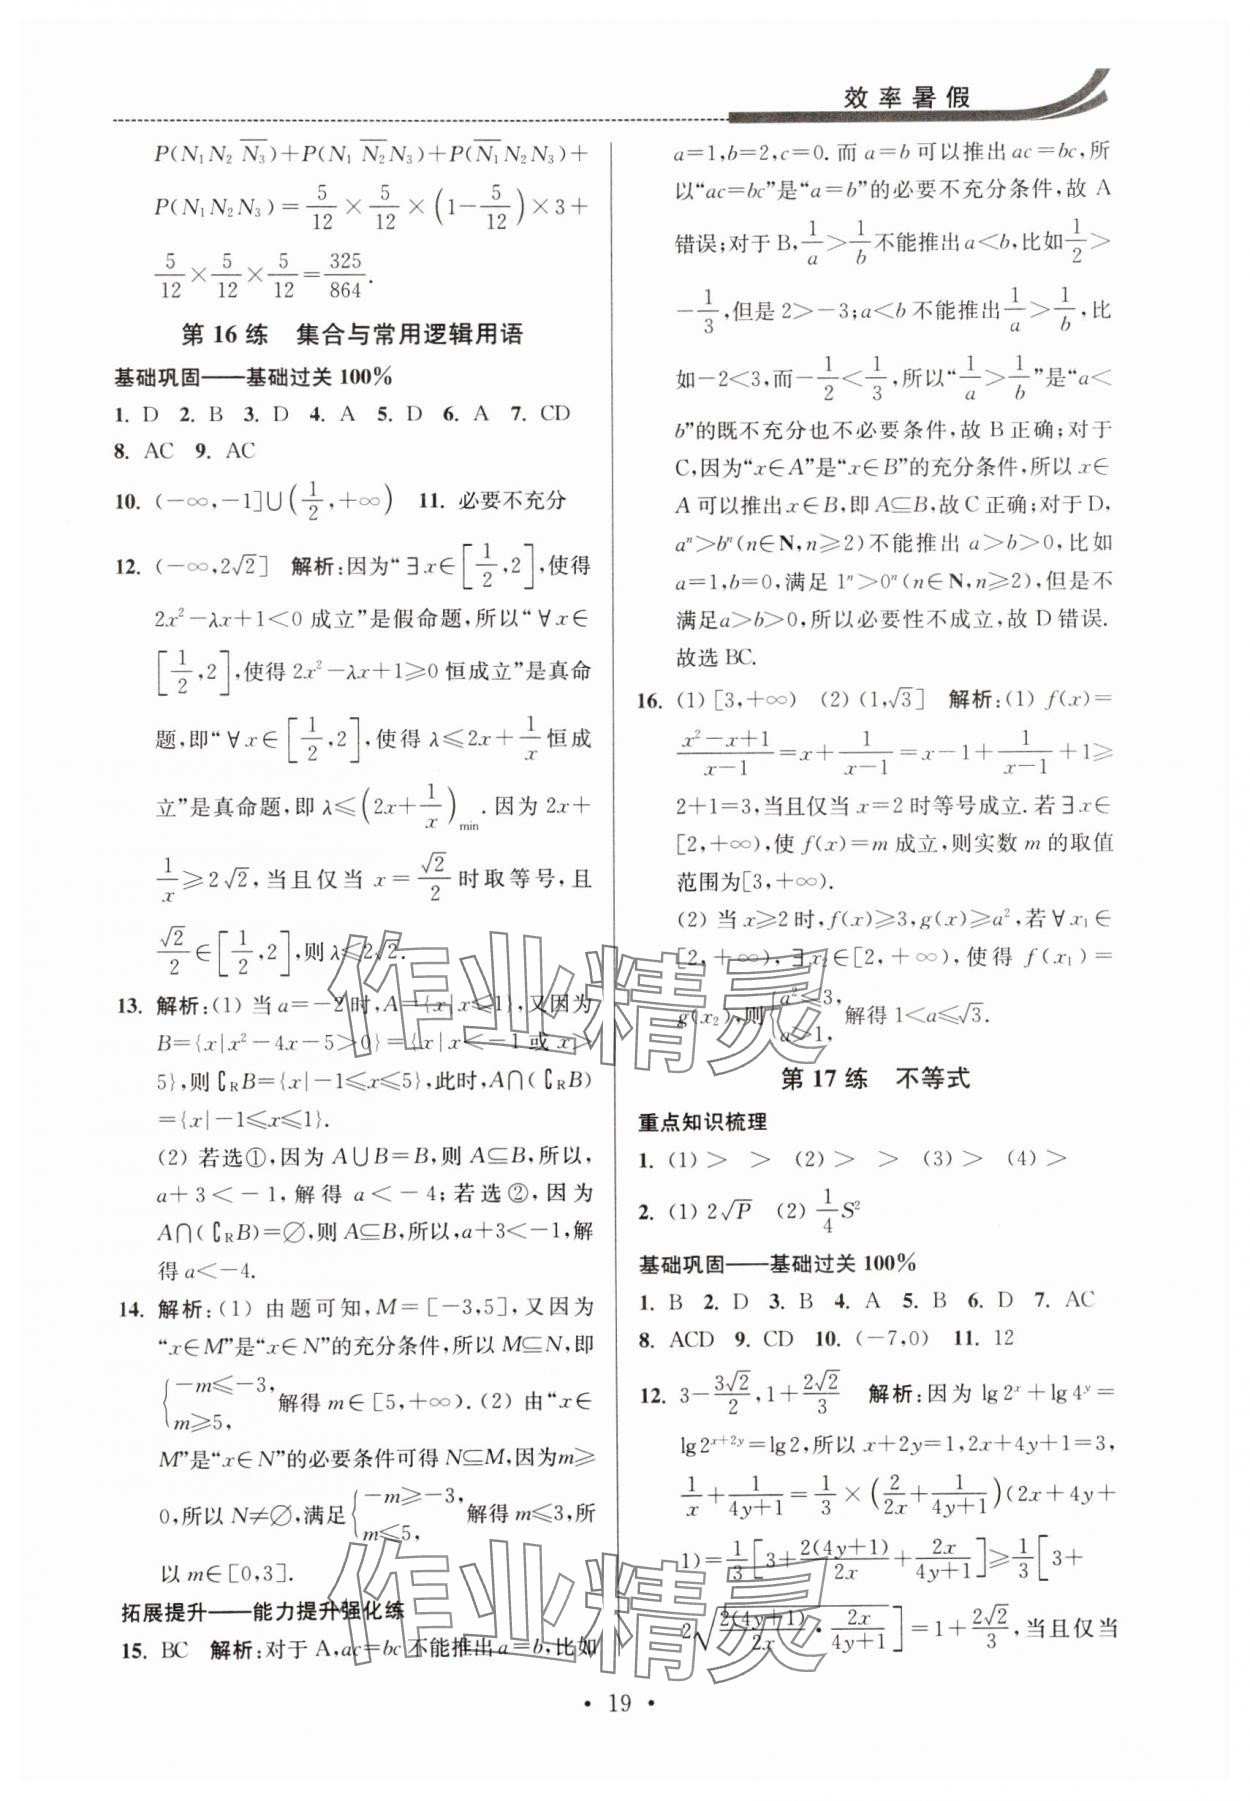 效率暑假
P(N₁N₂N̅₃)+P(N₁N̅₂N₃)+P(N̅₁N₂N₃)+
P(N₁N₂N₃)=5/12×5/12×(1-5/12)×3+
5/12×5/12×5/12=325/864.
第16练 集合与常用逻辑用语
基础巩固——基础过关100%
1. D 2. B 3. D 4. A 5. D 6. A 7. CD
8. AC 9. AC
10. (-∞,-1]∪(1/2,+∞) 11. 必要不充分
12. (-∞,2√2] 解析:因为“∃x∈[1/2,2],使得
2x²-λx+1<0 成立”是假命题,所以“∀x∈
[1/2,2],使得 2x²-λx+1≥0 恒成立”是真命
题,即“∀x∈[1/2,2],使得 λ≤2x+1/x恒成
立”是真命题,即 λ≤(2x+1/x)min.因为 2x+
1/x≥2√2,当且仅当 x=√2/2时取等号,且
√2/2∈[1/2,2],则λ≤2√2.
13. 解析:(1) 当a=-2时,A={x|x≤1},又因为
B={x|x²-4x-5>0}={x|x<-1 或 x>
5},则∁RB={x|-1≤x≤5},此时,A∩(∁RB)
={x|-1≤x≤1}.
(2) 若选①,因为 A∪B=B,则 A⊆B,所以,
a+3<-1,解得 a<-4;若选②,因为
A∩(∁RB)=∅,则 A⊆B,所以,a+3<-1,解
得 a<-4.
14. 解析:(1) 由题可知,M=[-3,5],又因为
“x∈M”是“x∈N”的充分条件,所以 M⊆N,即
{-m≤-3, m≥5, 解得 m∈[5,+∞).(2) 由“x∈
M”是“x∈N”的必要条件可得 N⊆M,因为m≥
0,所以 N≠∅,满足{-m≥-3, m≤5, 解得 m≤3,所
以 m∈[0,3].
拓展提升——能力提升强化练
15. BC 解析:对于 A,ac=bc 不能推出 a=b,比如
a=1,b=2,c=0.而 a=b 可以推出 ac=bc,所
以“ac=bc”是“a=b”的必要不充分条件,故 A
错误;对于 B,1/a>1/b不能推出 a<b,比如1/2>
-1/3,但是 2>-3;a<b 不能推出1/a>1/b,比
如-2<3,而-1/2<1/3,所以“1/a>1/b”是“a<
b”的既不充分也不必要条件,故 B 正确;对于
C,因为“x∈A”是“x∈B”的充分条件,所以 x∈
A 可以推出 x∈B,即 A⊆B,故 C 正确;对于 D,
aⁿ>bⁿ(n∈N,n≥2)不能推出 a>b>0,比如
a=1,b=0,满足 1ⁿ>0ⁿ(n∈N,n≥2),但是不
满足a>b>0,所以必要性不成立,故 D 错误.
故选 BC.
16. (1) [3,+∞) (2) (1,√3] 解析:(1) f(x)=
(x²-x+1)/(x-1)=x+1/(x-1)=x-1+1/(x-1)+1≥
2+1=3,当且仅当 x=2 时等号成立.若∃x∈
[2,+∞),使 f(x)=m 成立,则实数 m 的取值
范围为[3,+∞).
(2) 当 x≥2 时,f(x)≥3,g(x)≥a²,若∀x₁∈
[2,+∞),∃x₂∈[2,+∞),使得 f(x₁)=
g(x₂),则{a²≤3, a>1, 解得 1<a≤√3.
第17练 不等式
重点知识梳理
1. (1) > > (2) > > (3) > (4) >
2. (1) 2√P (2) 1/4 S²
基础巩固——基础过关100%
1. B 2. D 3. B 4. A 5. B 6. D 7. AC
8. ACD 9. CD 10. (-7,0) 11. 12
12. 3-3√2/2,1+2√2/3 解析:因为 lg2ˣ+lg4ʸ=
lg2ˣ⁺²ʸ=lg2,所以 x+2y=1,2x+4y+1=3,
1/x+1/(4y+1)=1/3×(2/2x+1/(4y+1))(2x+4y+
1)=1/3[3+2(4y+1)/2x+2x/(4y+1)]≥1/3[3+
2√(2(4y+1)/2x·2x/(4y+1))]=1+2√2/3,当且仅当
• 19 •
作业精灵
作业精灵